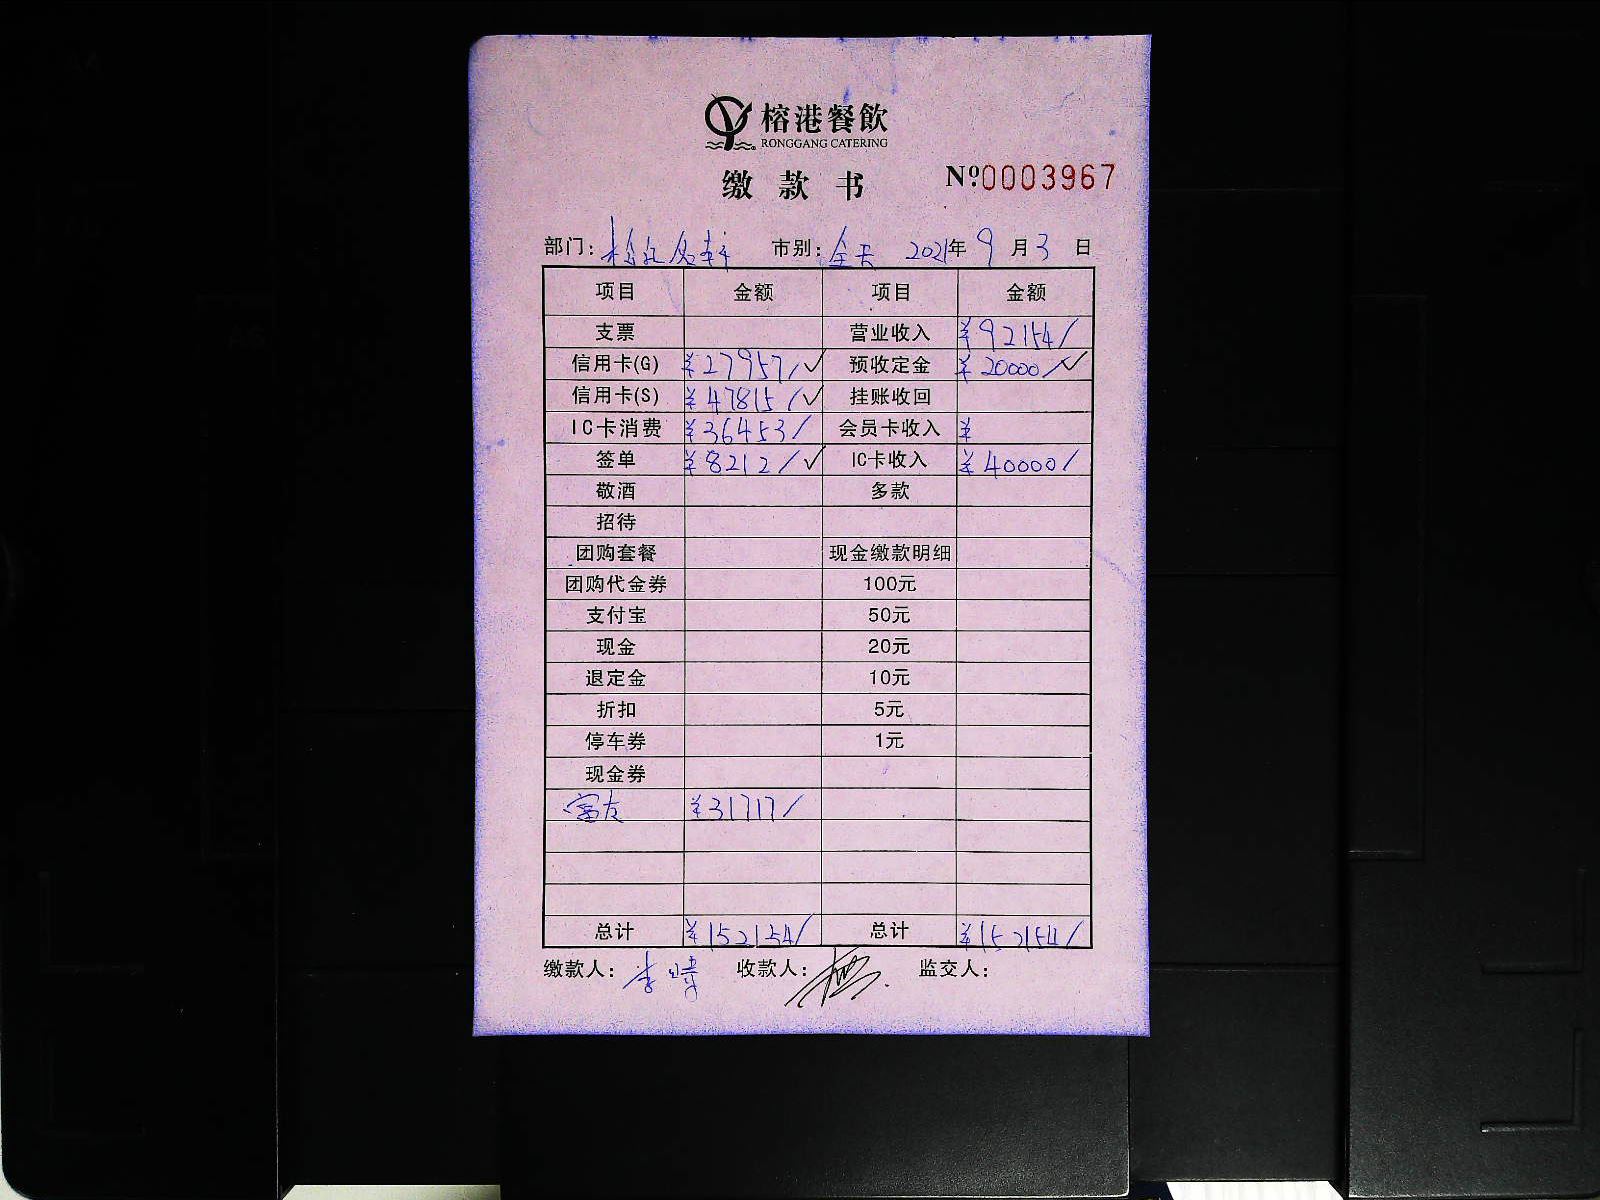 榕港餐飲
RONGGANG CATERING
缴款书 Nº.0003967
部门: 市别:全天 2021年9月3日
项目 金额 项目 金额
支票 营业收入 ¥92154/
信用卡(G) ¥27957/✓ 预收定金 ¥20000/✓
信用卡(S) ¥47815/✓ 挂账收回
IC卡消费 ¥36453/ 会员卡收入 ¥
签单 ¥8212/✓ IC卡收入 ¥40000/
敬酒 多款
招待
团购套餐 现金缴款明细
团购代金券 100元
支付宝 50元
现金 20元
退定金 10元
折扣 5元
停车券 1元
现金券
富友 ¥31717/
总计 ¥152154/ 总计 ¥152154/
缴款人:李 收款人: 监交人: